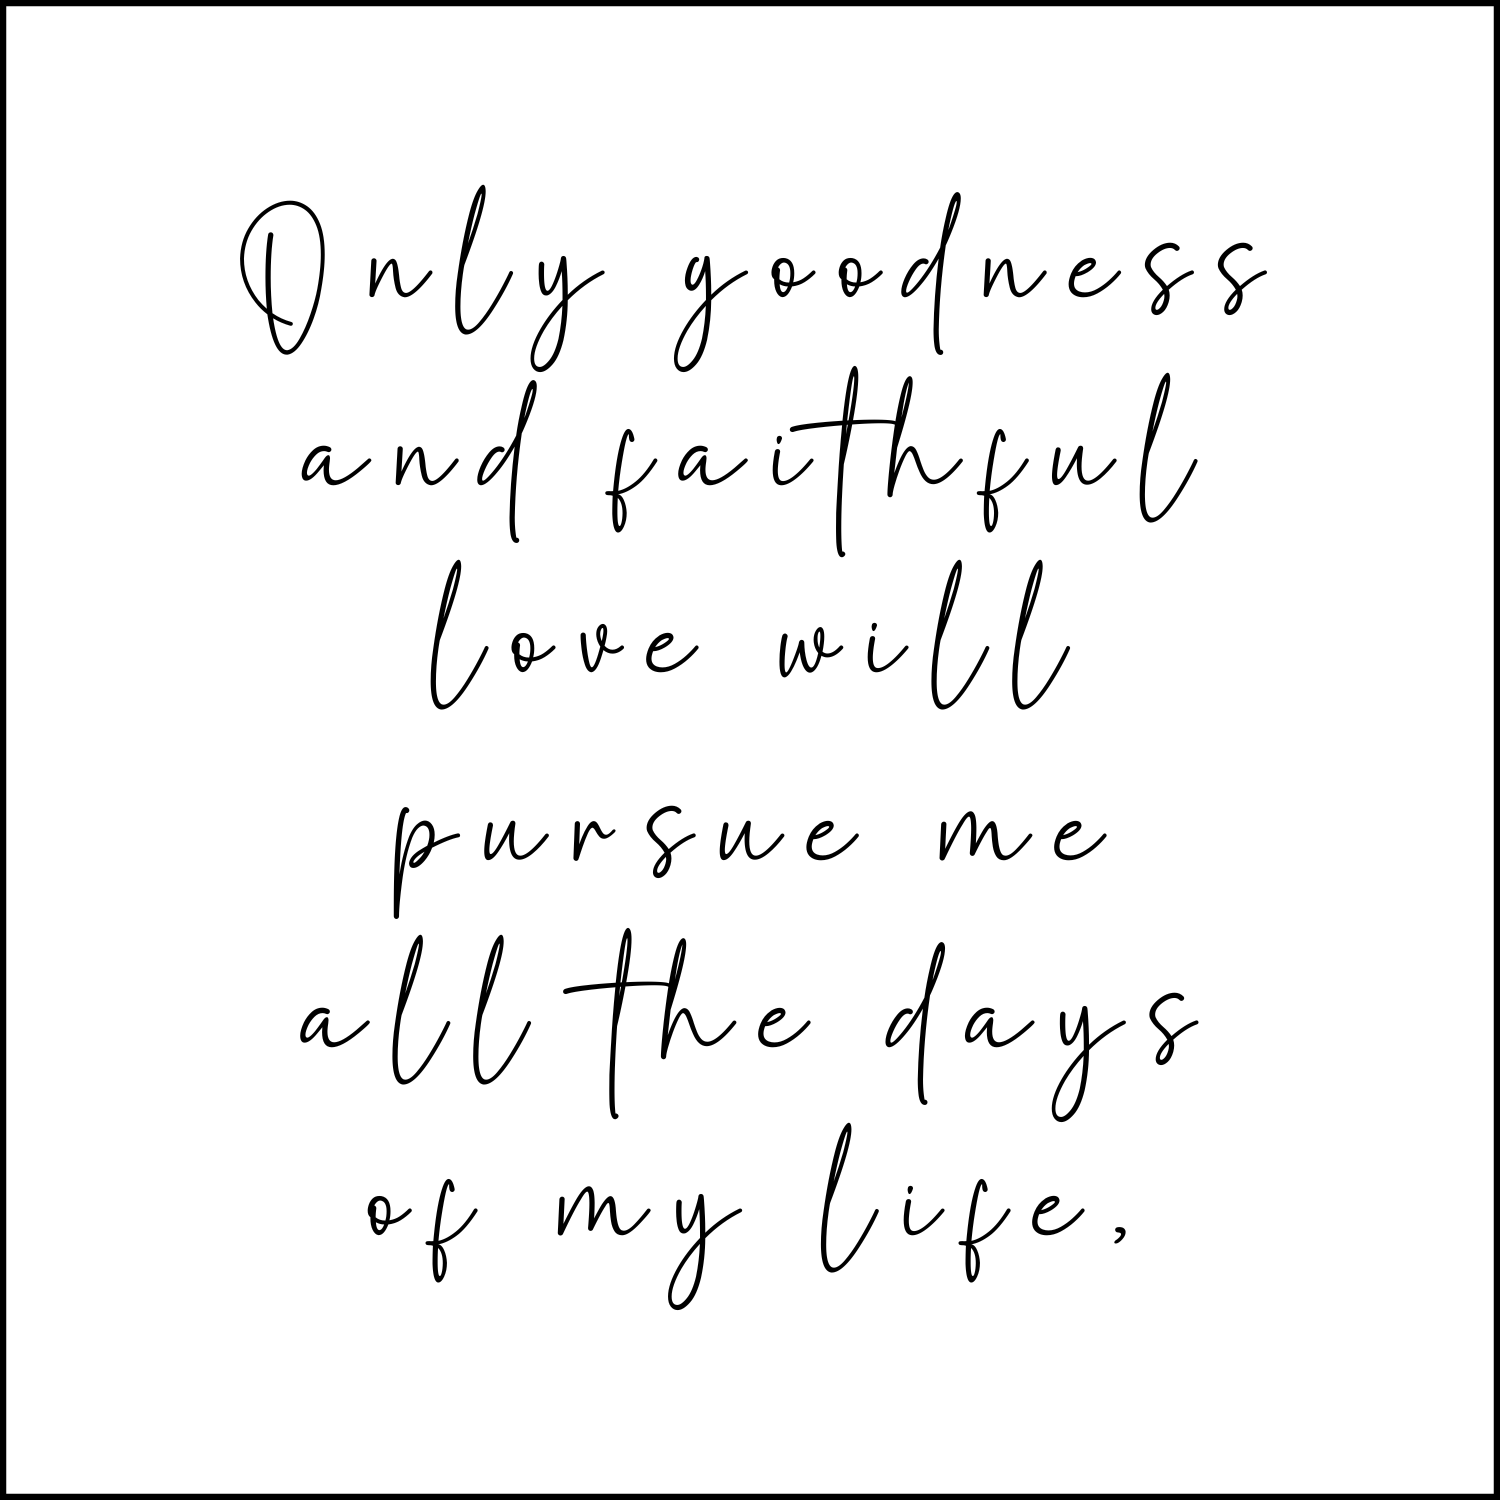 Only goodness
and faithful
love will
pursue me
all the days
of my life,